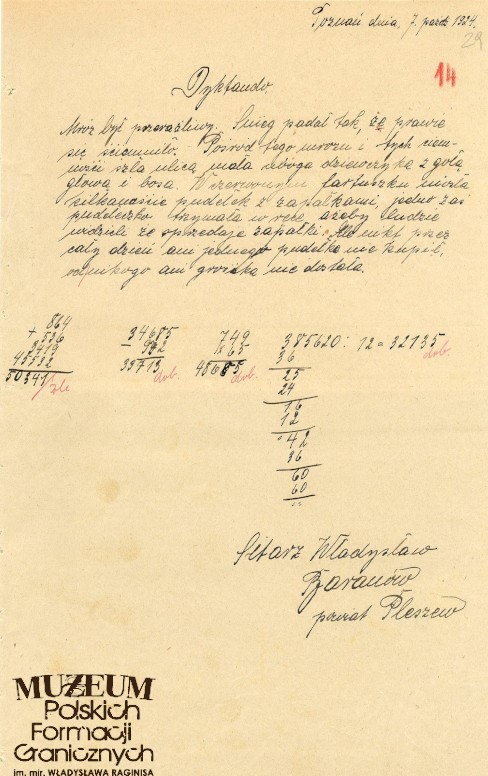 Poznań dnia, 7. paźdz 1924.
29
14
Dyktando.
Mróz był przeraźliwy. Śnieg padał tak, że prawie
się ściemniło. Pośród tego mrozu i tych
szła ulicą mała uboga dziewczynka z gołą
głową i bosa. W czerwonym fartuszku niosła
kilkanaście pudełek z zapałkami, jedno zaś
pudełeczko trzymała w ręce, ażeby ludzie
widzieli że sprzedaje zapałki. Ale nikt przez
cały dzień ani jednego pudełka nie kupił,
od nikogo ani grosika nie dostała.
864
+ 536
3419
45532
50341
źle
34685
- 972
33713
dob.
749
x 65
48685
dob.
385620 : 12 = 32135
dob.
36
25
24
16
12
42
36
60
60
Sitarz Władysław
Baranów
powiat Pleszew
MUZEUM
Polskich
Formacji
Granicznych
im. mjr. WŁADYSŁAWA RAGINISA